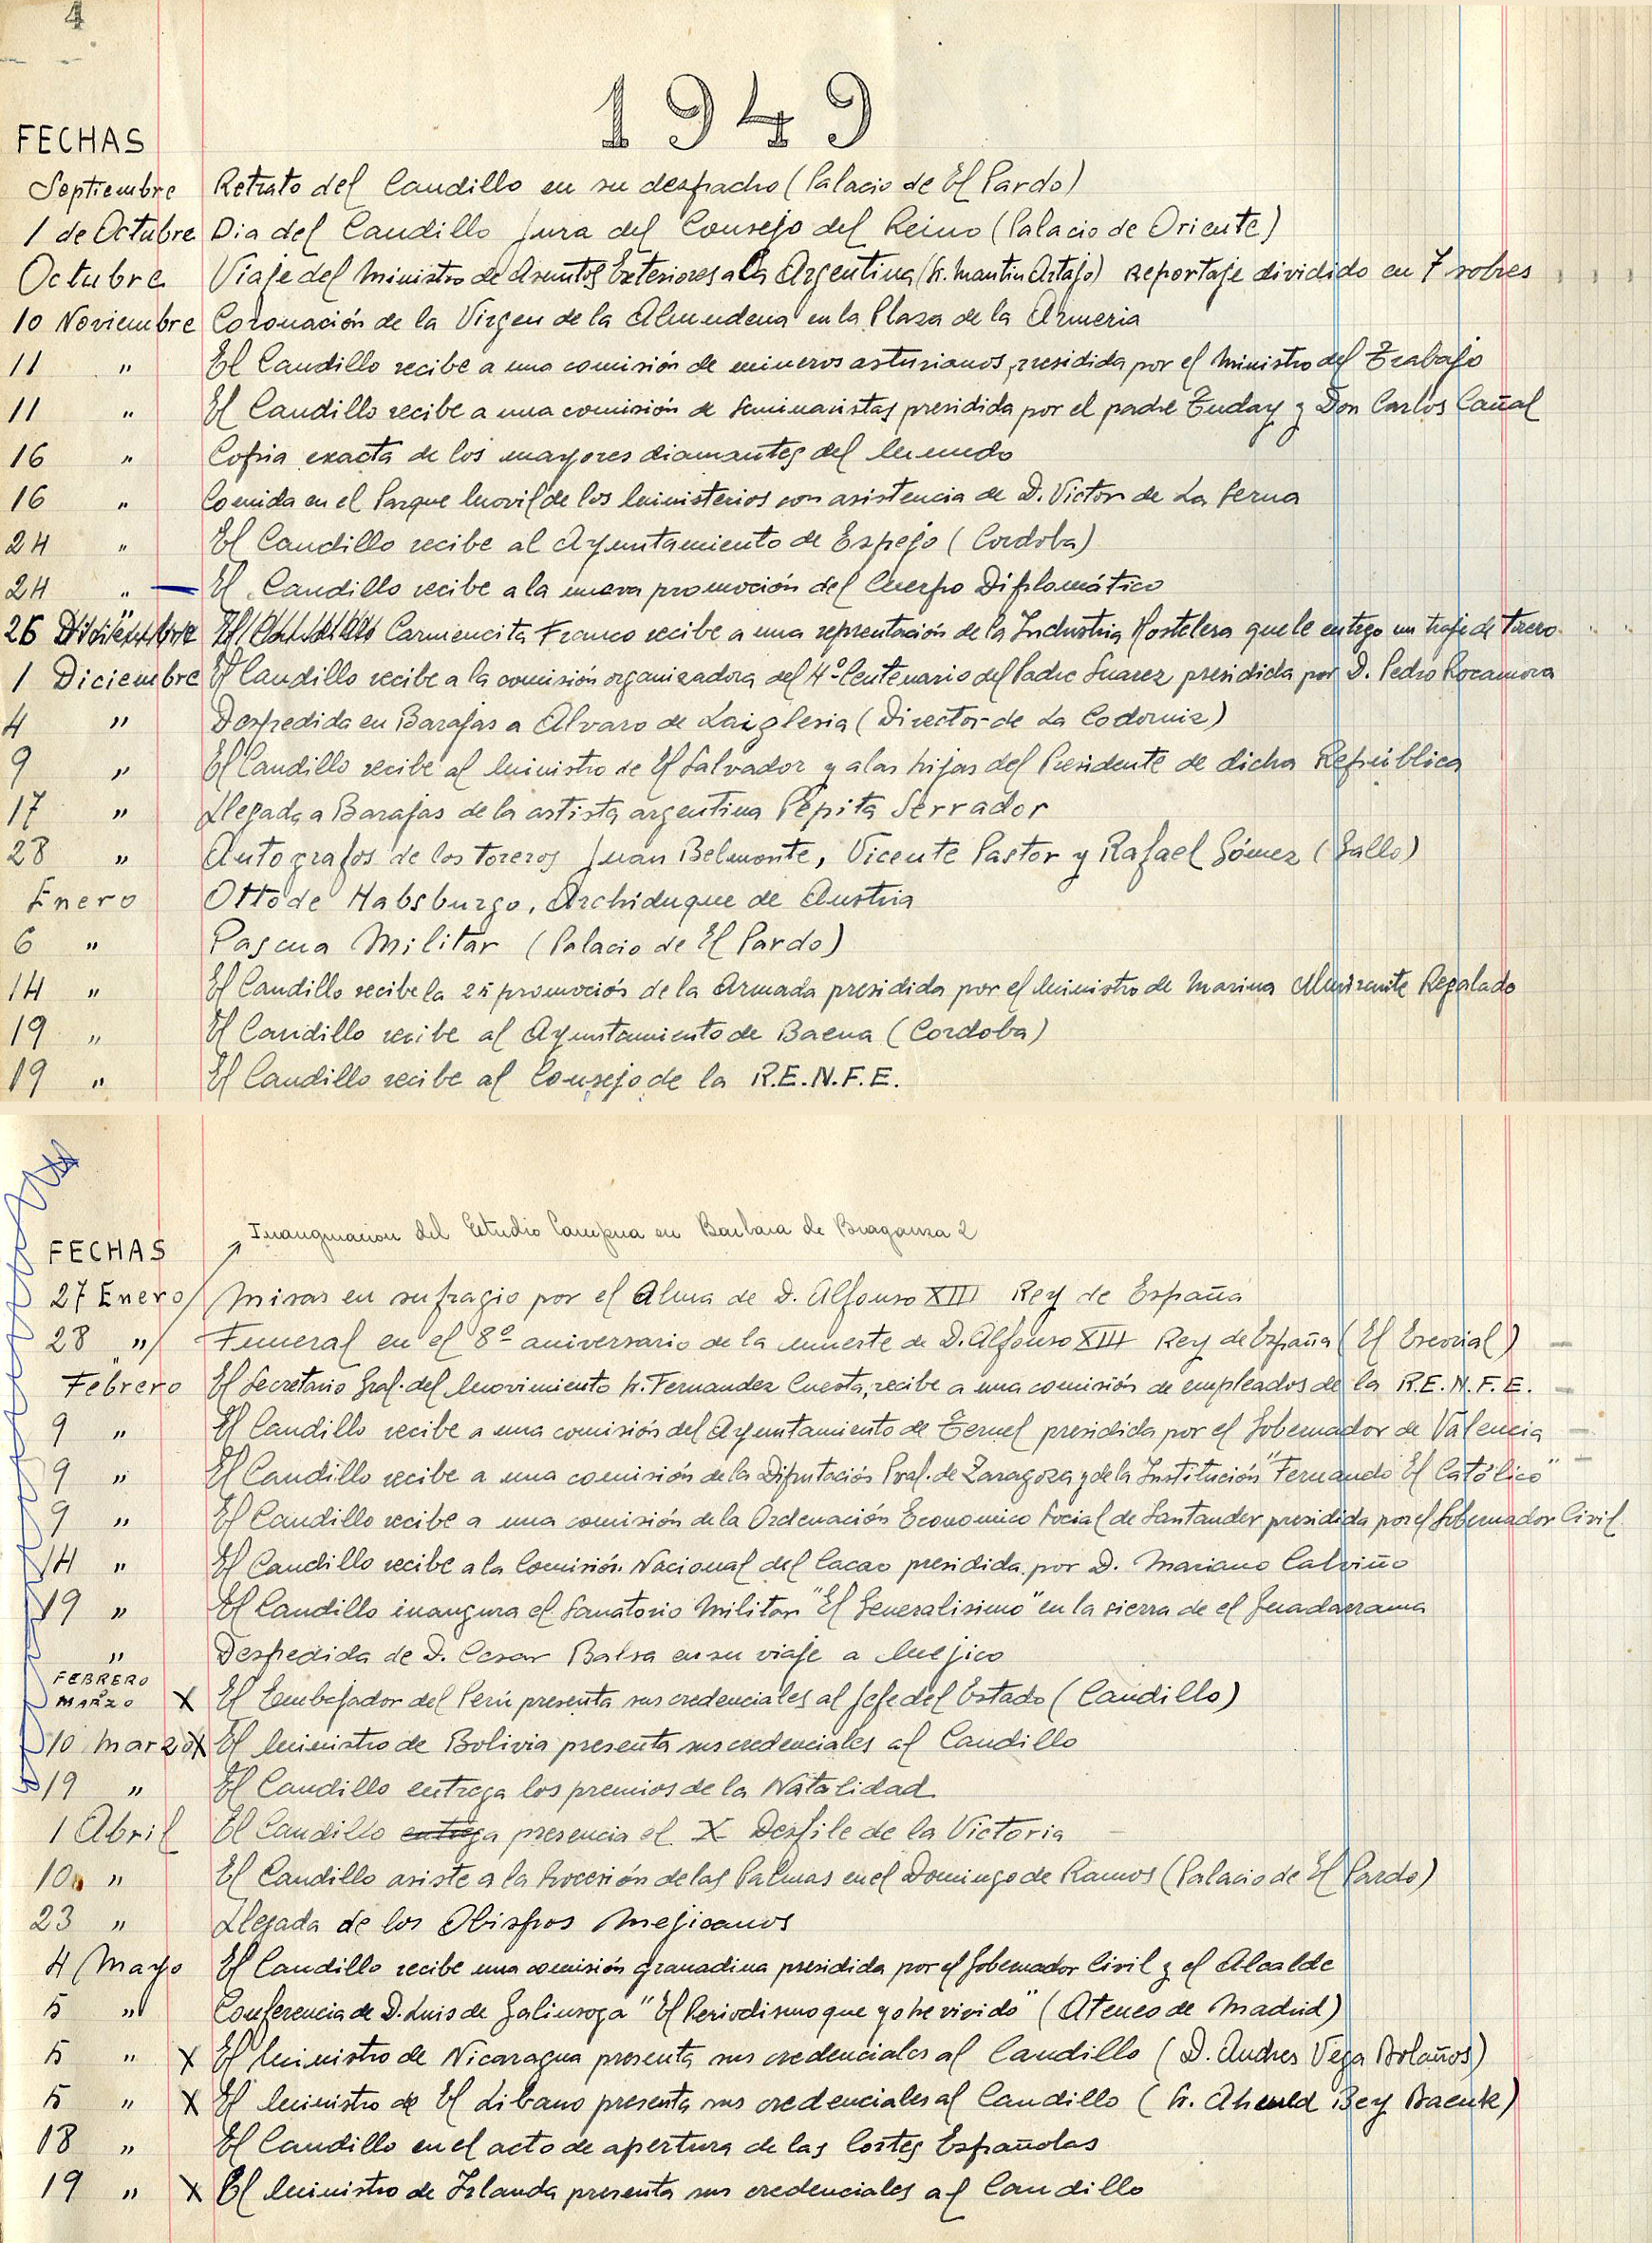 4
1949
FECHAS
Septiembre Retrato del Caudillo en su despacho (Palacio de El Pardo)
1 de Octubre Dia del Caudillo Jura del Consejo del Reino (Palacio de Oriente)
Octubre Viaje del Ministro de Asuntos Exteriores a la Argentina (Sr. Martin Artajo) Reportaje dividido en 7 sobres
10 Noviembre Coronación de la Virgen de la Almudena en la Plaza de la Armeria
11 " El Caudillo recibe a una comisión de mineros asturianos, presidida por el Ministro del Trabajo
11 " El Caudillo recibe a una comisión de Seminaristas presidida por el padre Tuday y Don Carlos Cañal
16 " Copia exacta de los mayores diamantes del Mundo
16 " Comida en el Parque Movil de los Ministerios con asistencia de D. Victor de La Serna
24 " El Caudillo recibe al Ayuntamiento de Espejo (Cordoba)
24 " El Caudillo recibe a la nueva promoción del Cuerpo Diplomático
26 Carmencita Franco recibe a una reprentación de la Industria Hostelera que le entrego un traje de Torero
1 Diciembre El Caudillo recibe a la comisión organizadora del 4º Centenario del Padre Suarez presidida por D. Pedro Rocamora
4 " Despedida en Barajas a Alvaro de Laiglesia (Director de La Codorniz)
9 " El Caudillo recibe al Ministro de El Salvador y a las hijas del Presidente de dicha República
17 " Llegada a Barajas de la artista argentina Pepita Serrador
28 " Autografos de los toreros Juan Belmonte, Vicente Pastor y Rafael Gómez (Gallo)
Enero Otto de Habsburgo, Archiduque de Austria
6 " Pascua Militar (Palacio de El Pardo)
14 " El Caudillo recibe la 25 promoción de la Armada presidida por el Ministro de Marina Almirante Regalado
19 " El Caudillo recibe al Ayuntamiento de Baena (Cordoba)
19 " El Caudillo recibe al Consejo de la R.E.N.F.E.
Inauguracion del Estudio Campua en Barbara de Braganza 2
FECHAS
27 Enero Misas en sufragio por el Alma de D. Alfonso XIII Rey de España
28 " Funeral en el 8º aniversario de la muerte de D. Alfonso XIII Rey de España (El Escorial)
Febrero El Secretario Gral. del Movimiento Sr. Fernandez Cuesta, recibe a una comisión de empleados de la R.E.N.F.E.
9 " El Caudillo recibe a una comisión del Ayuntamiento de Teruel presidida por el Gobernador de Valencia
9 " El Caudillo recibe a una comisión de la Diputación Proal. de Zaragoza y de la Institución "Fernando El Católico"
9 " El Caudillo recibe a una comisión de la Ordenación Economico Social de Santander presidida por el Gobernador Civil
14 " El Caudillo recibe a la Comisión Nacional del Cacao presidida por D. Mariano Calviño
19 " El Caudillo inaugura el Sanatorio Militar "El Generalisimo" en la sierra de el Guadarrama
" Despedida de D. Cesar Balsa en su viaje a Mejico
FEBRERO
MARZO X El Embajador del Perú presenta sus credenciales al Jefe del Estado (Caudillo)
10 Marzo X El Ministro de Bolivia presenta sus credenciales al Caudillo
19 " El Caudillo entrega los premios de la Natalidad
1 Abril El Caudillo entrega presencia el X Desfile de la Victoria
10 " El Caudillo asiste a la Procesión de las Palmas en el Domingo de Ramos (Palacio de El Pardo)
23 " Llegada de los Obispos Mejicanos
4 Mayo El Caudillo recibe una comisión granadina presidida por el Gobernador Civil y el Alcalde
5 " Conferencia de D. Luis de Galinsoga "El Periodismo que yo he vivido" (Ateneo de Madrid)
5 " X El Ministro de Nicaragua presenta sus credenciales al Caudillo (D. Andres Vega Bolaños)
5 " X El Ministro de El Libano presenta sus credenciales al Caudillo (Sr. Bey)
18 " El Caudillo en el acto de apertura de las Cortes Españolas
19 " X El Ministro de Irlanda presenta sus credenciales al Caudillo